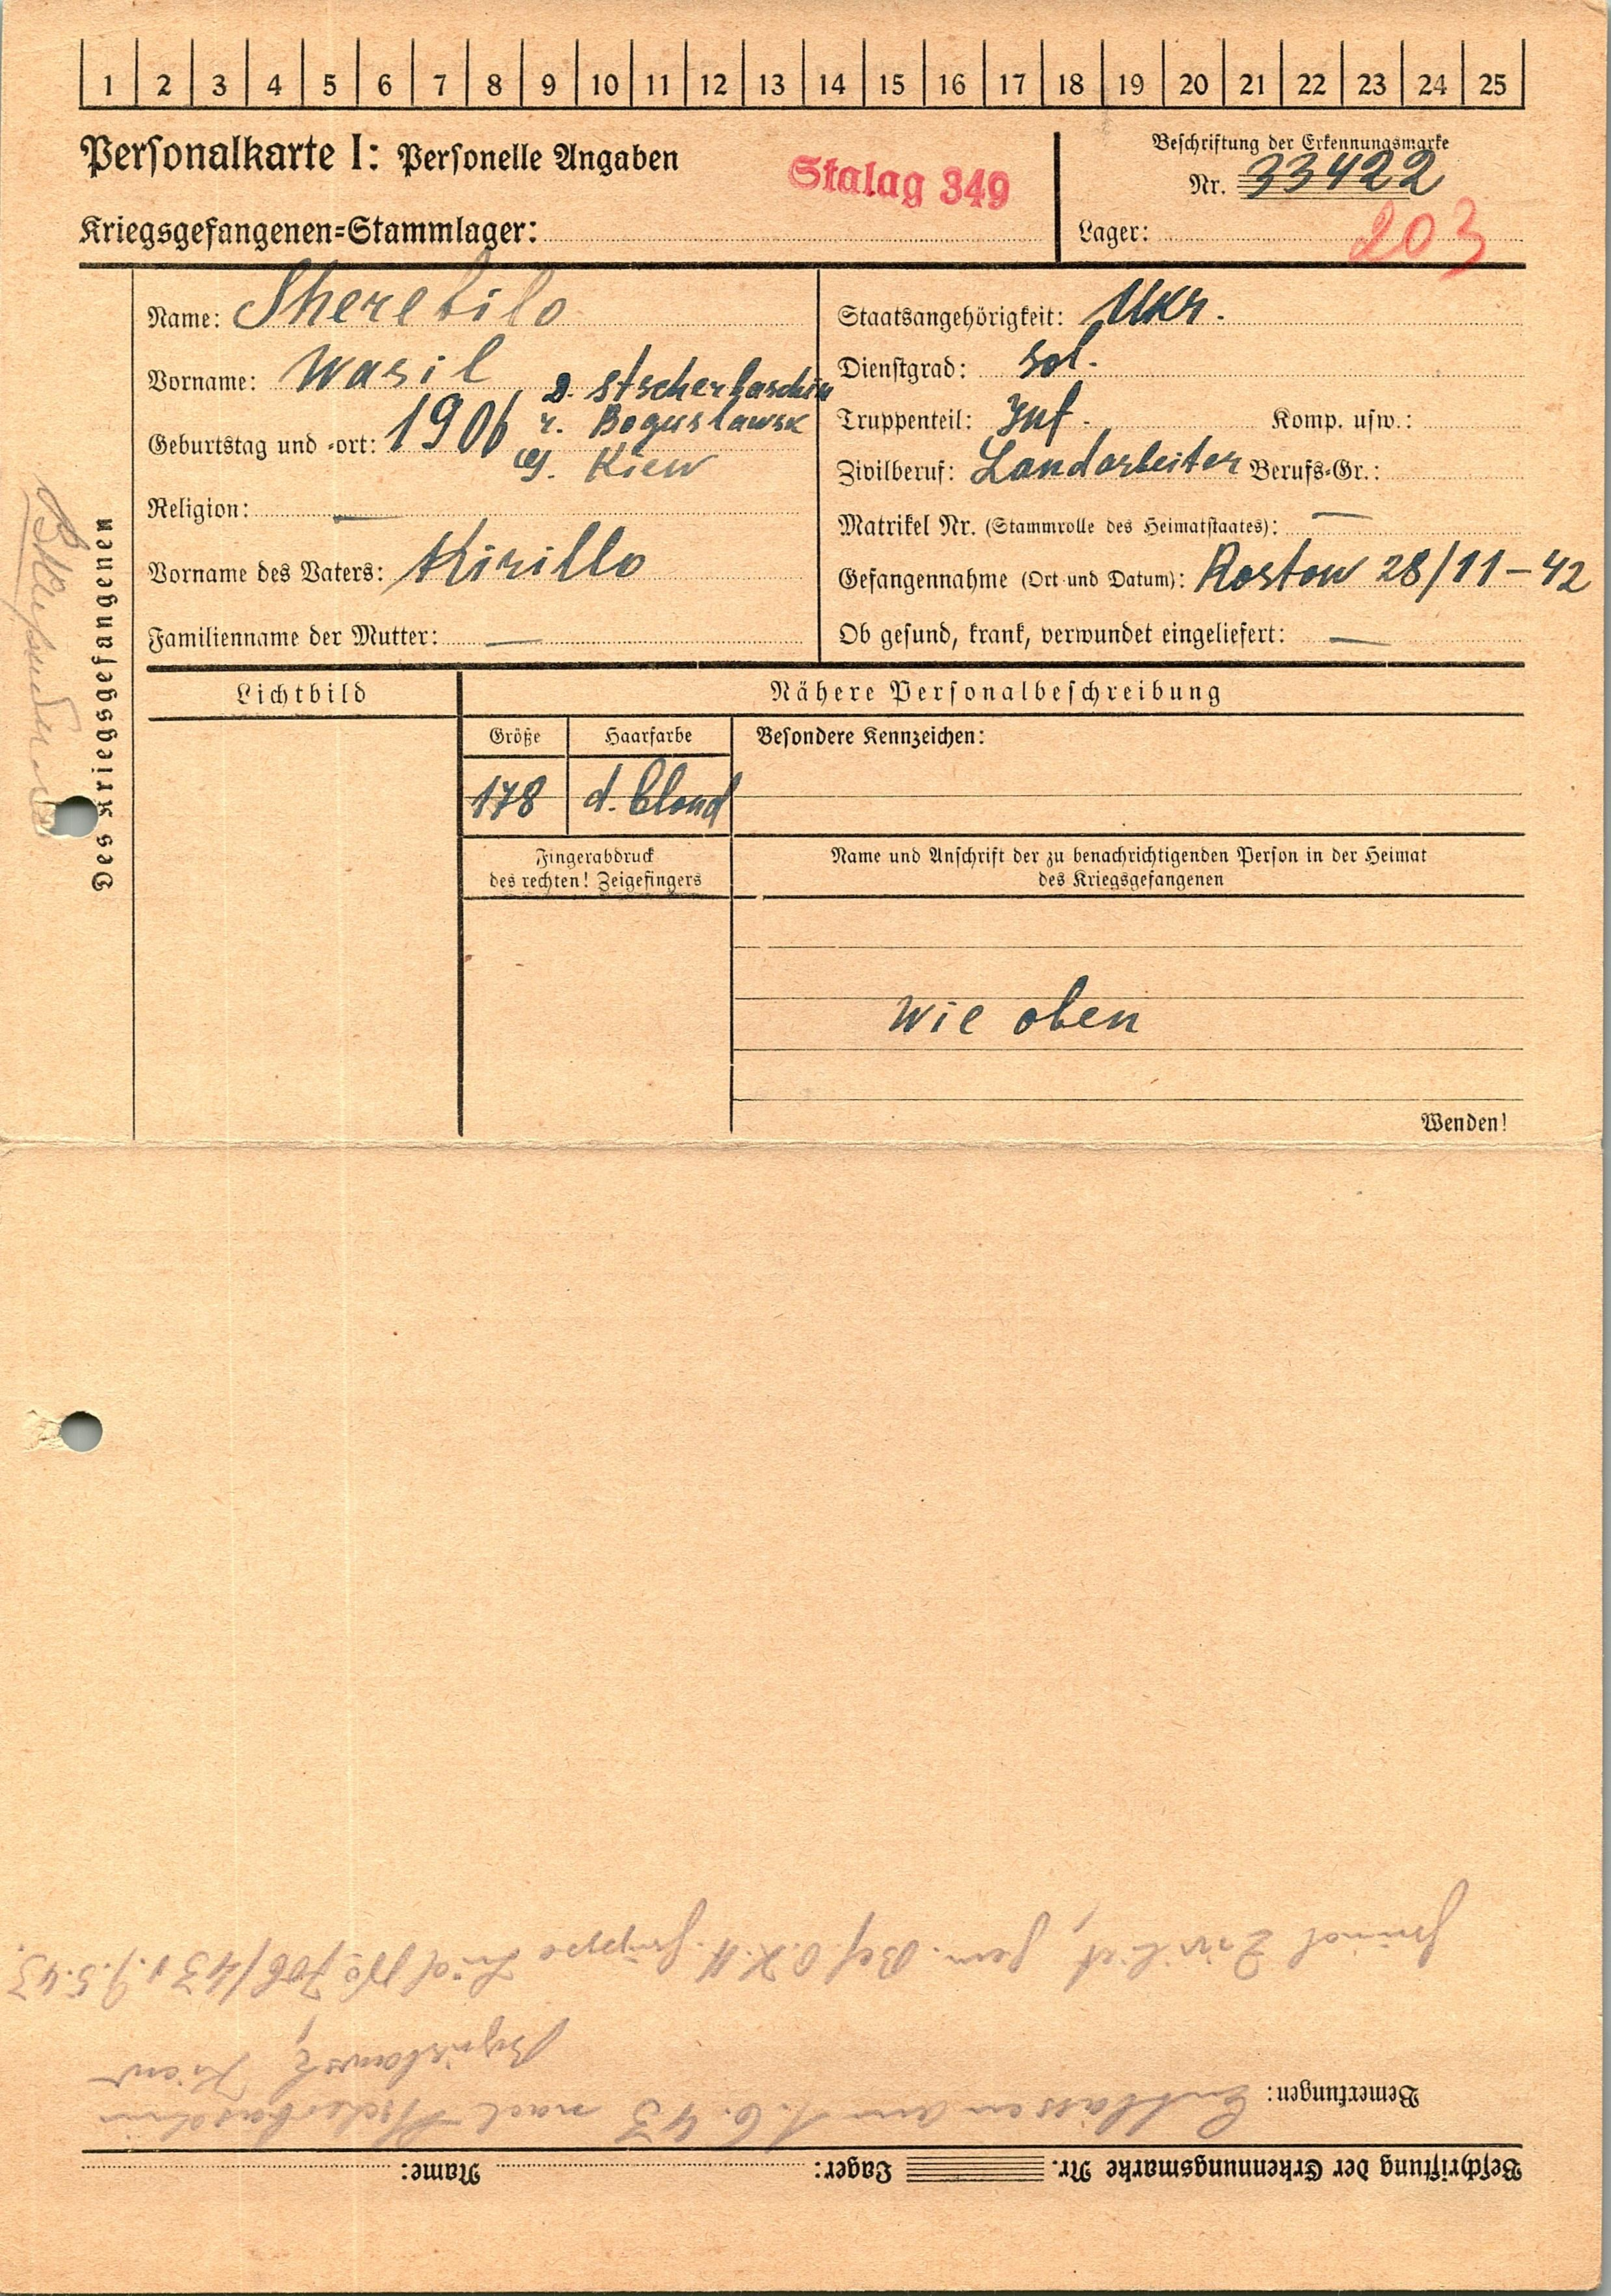 1 2 3 4 5 6 7 8 9 10 11 12 13 14 15 16 17 18 19 20 21 22 23 24 25
Personalkarte I: Personelle Angaben
Stalag 349
Kriegsgefangenen-Stammlager:
Beschriftung der Erkennungsmarke
Nr. 33422
Lager: 203
Des Kriegsgefangenen
Name: Sherebilo
Vorname: Wasil
Geburtstag und -ort: 1906 D. Stscherbaschin
r. Boguslawsk
G. Kiew
Religion: —
Vorname des Vaters: Kirillo
Familienname der Mutter: —
Staatsangehörigkeit: Ukr.
Dienstgrad: Sol.
Truppenteil: Inf. Komp. usw.:
Zivilberuf: Landarbeiter Berufs-Gr.:
Matrikel Nr. (Stammrolle des Heimatstaates): —
Gefangennahme (Ort und Datum): Rostow 28/11-42
Ob gesund, krank, verwundet eingeliefert: —
Lichtbild
Nähere Personalbeschreibung
Größe
Haarfarbe
Besondere Kennzeichen:
178
d. blond
Fingerabdruck
des rechten! Zeigefingers
Name und Anschrift der zu benachrichtigenden Person in der Heimat
des Kriegsgefangenen
Wie oben
Wenden!
Beschriftung der Erkennungsmarke Nr. Lager: Name:
Bemerkungen: Entlassen am 1.6.43 nach Stscherbaschin
Boguslawsk, Kiew
gem. Bef. O.K.H. Gruppe Süd No 706/43 v. 9.5.43.